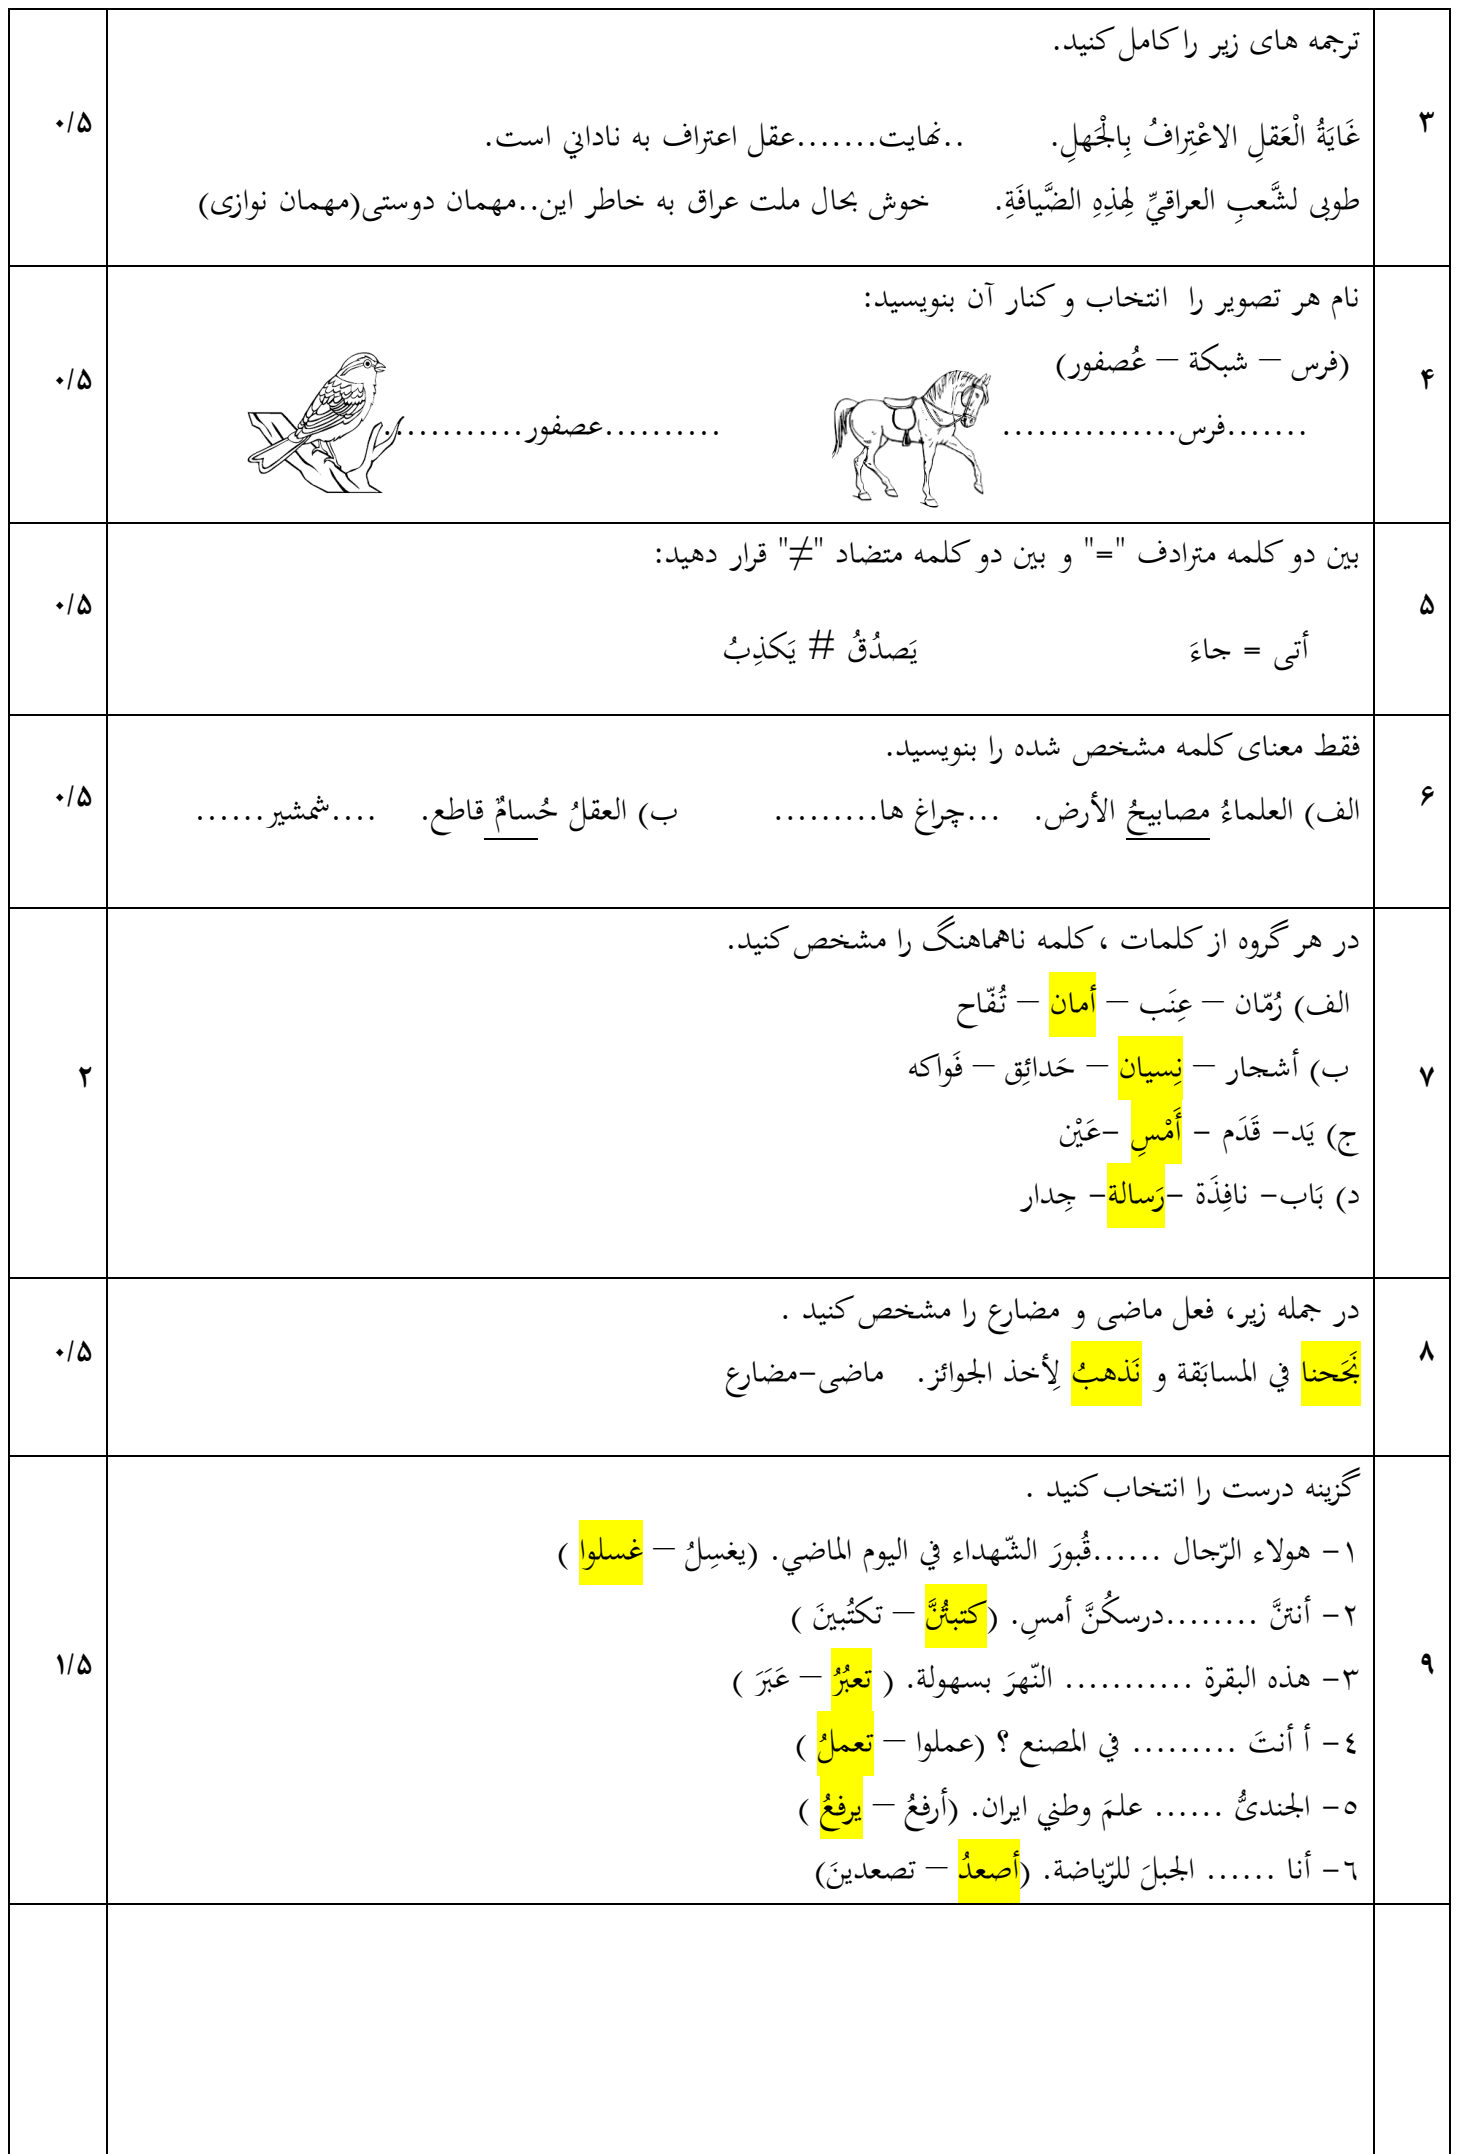 ۳
ترجمه های زیر را کامل کنید.
غَايَةُ الْعَقلِ الاعْتِرافُ بِالْجَهلِ. ..نهایت.......عقل اعتراف به نادانی است.
طوبی لشَّعبِ العراقيِّ لِهذِهِ الضَّيافَةِ. خوش بحال ملت عراق به خاطر این..مهمان دوستی(مهمان نوازی)
۰/۵
۴
نام هر تصویر را انتخاب و کنار آن بنویسید:
(فرس – شبكة – عُصفور)
.......فرس............... ..........عصفور............
۰/۵
۵
بین دو کلمه مترادف "=" و بین دو کلمه متضاد "≠" قرار دهید:
أتی = جاءَ يَصدُقُ # يَكذِبُ
۰/۵
۶
فقط معنای کلمه مشخص شده را بنویسید.
الف) العلماءُ مصابيحُ الأرض. ...چراغ ها......... ب) العقلُ حُسامٌ قاطع. ....شمشیر......
۰/۵
۷
در هر گروه از کلمات ، کلمه ناهماهنگ را مشخص کنید.
الف) رُمّان – عِنَب – أمان – تُفّاح
ب) أشجار – نِسيان – حَدائِق – فَواكه
ج) يَد– قَدَم – أَمْسِ –عَيْن
د) بَاب– نافِذَة –رَسالة– جِدار
۲
۸
در جمله زیر، فعل ماضی و مضارع را مشخص کنید .
نَجَحنا في المسابَقة و نَذهبُ لِأخذ الجوائز. ماضی–مضارع
۰/۵
۹
گزینه درست را انتخاب کنید .
١– هولاء الرّجال ......قُبورَ الشّهداء في اليوم الماضي. (يغسِلُ – غسلوا )
٢– أنتنَّ ........درسكُنَّ أمسِ. (كتبتُنَّ – تكتُبينَ )
٣– هذه البقرة ........... النّهرَ بسهولة. ( تعبُرُ – عَبَرَ )
٤– أ أنتَ ......... في المصنع ؟ (عملوا – تعملُ )
٥– الجندیُّ ...... علمَ وطني ايران. (أرفعُ – يرفعُ )
٦– أنا ...... الجبلَ للرّياضة. (أصعدُ – تصعدينَ)
۱/۵